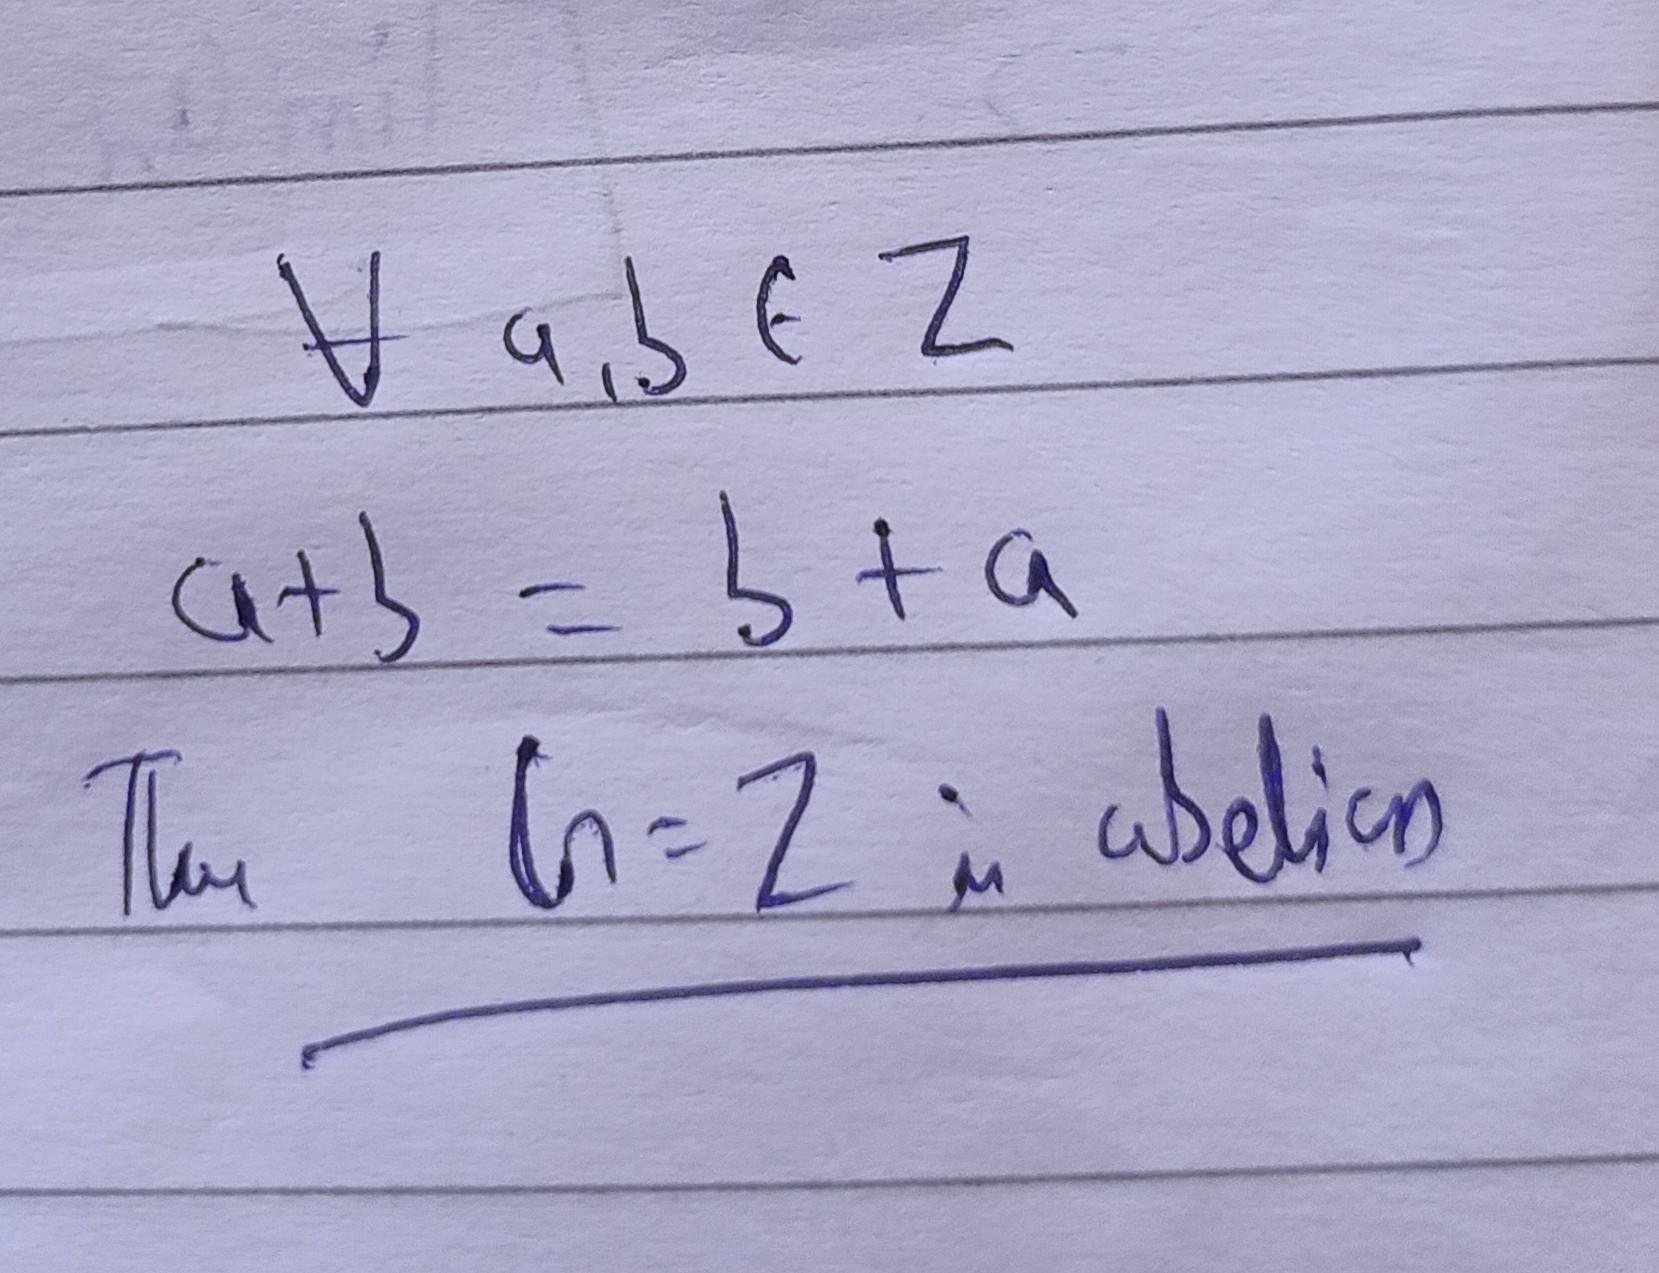 ∀ a,b ∈ Z
a+b = b + a
Thus G=Z is abelian